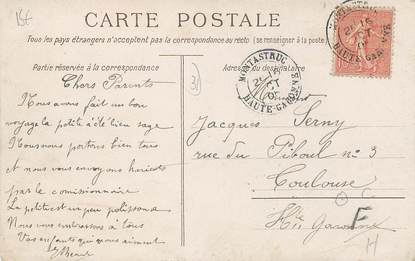 CARTE POSTALE
Tous les pays étrangers n'acceptent pas la correspondance au recto (se renseigner à la poste)
Partie réservée à la correspondance
Adresse du destinataire
MONTASTRUC
HAUTE-GARONNE
MONTASTRUC
HAUTE-GARONNE
Chers Parents
Nous avons fait un bon
voyage la petite a été bien sage
Nous nous portons bien tous
et nous vous envoyons haricots
par le comissionnaire
La petite est un peu polissonne
Nous vous embrassons à tous
Vos enfants qui vous aiment
Jacques Serny
rue du Piboul n° 3
Toulouse
Hte Garonne